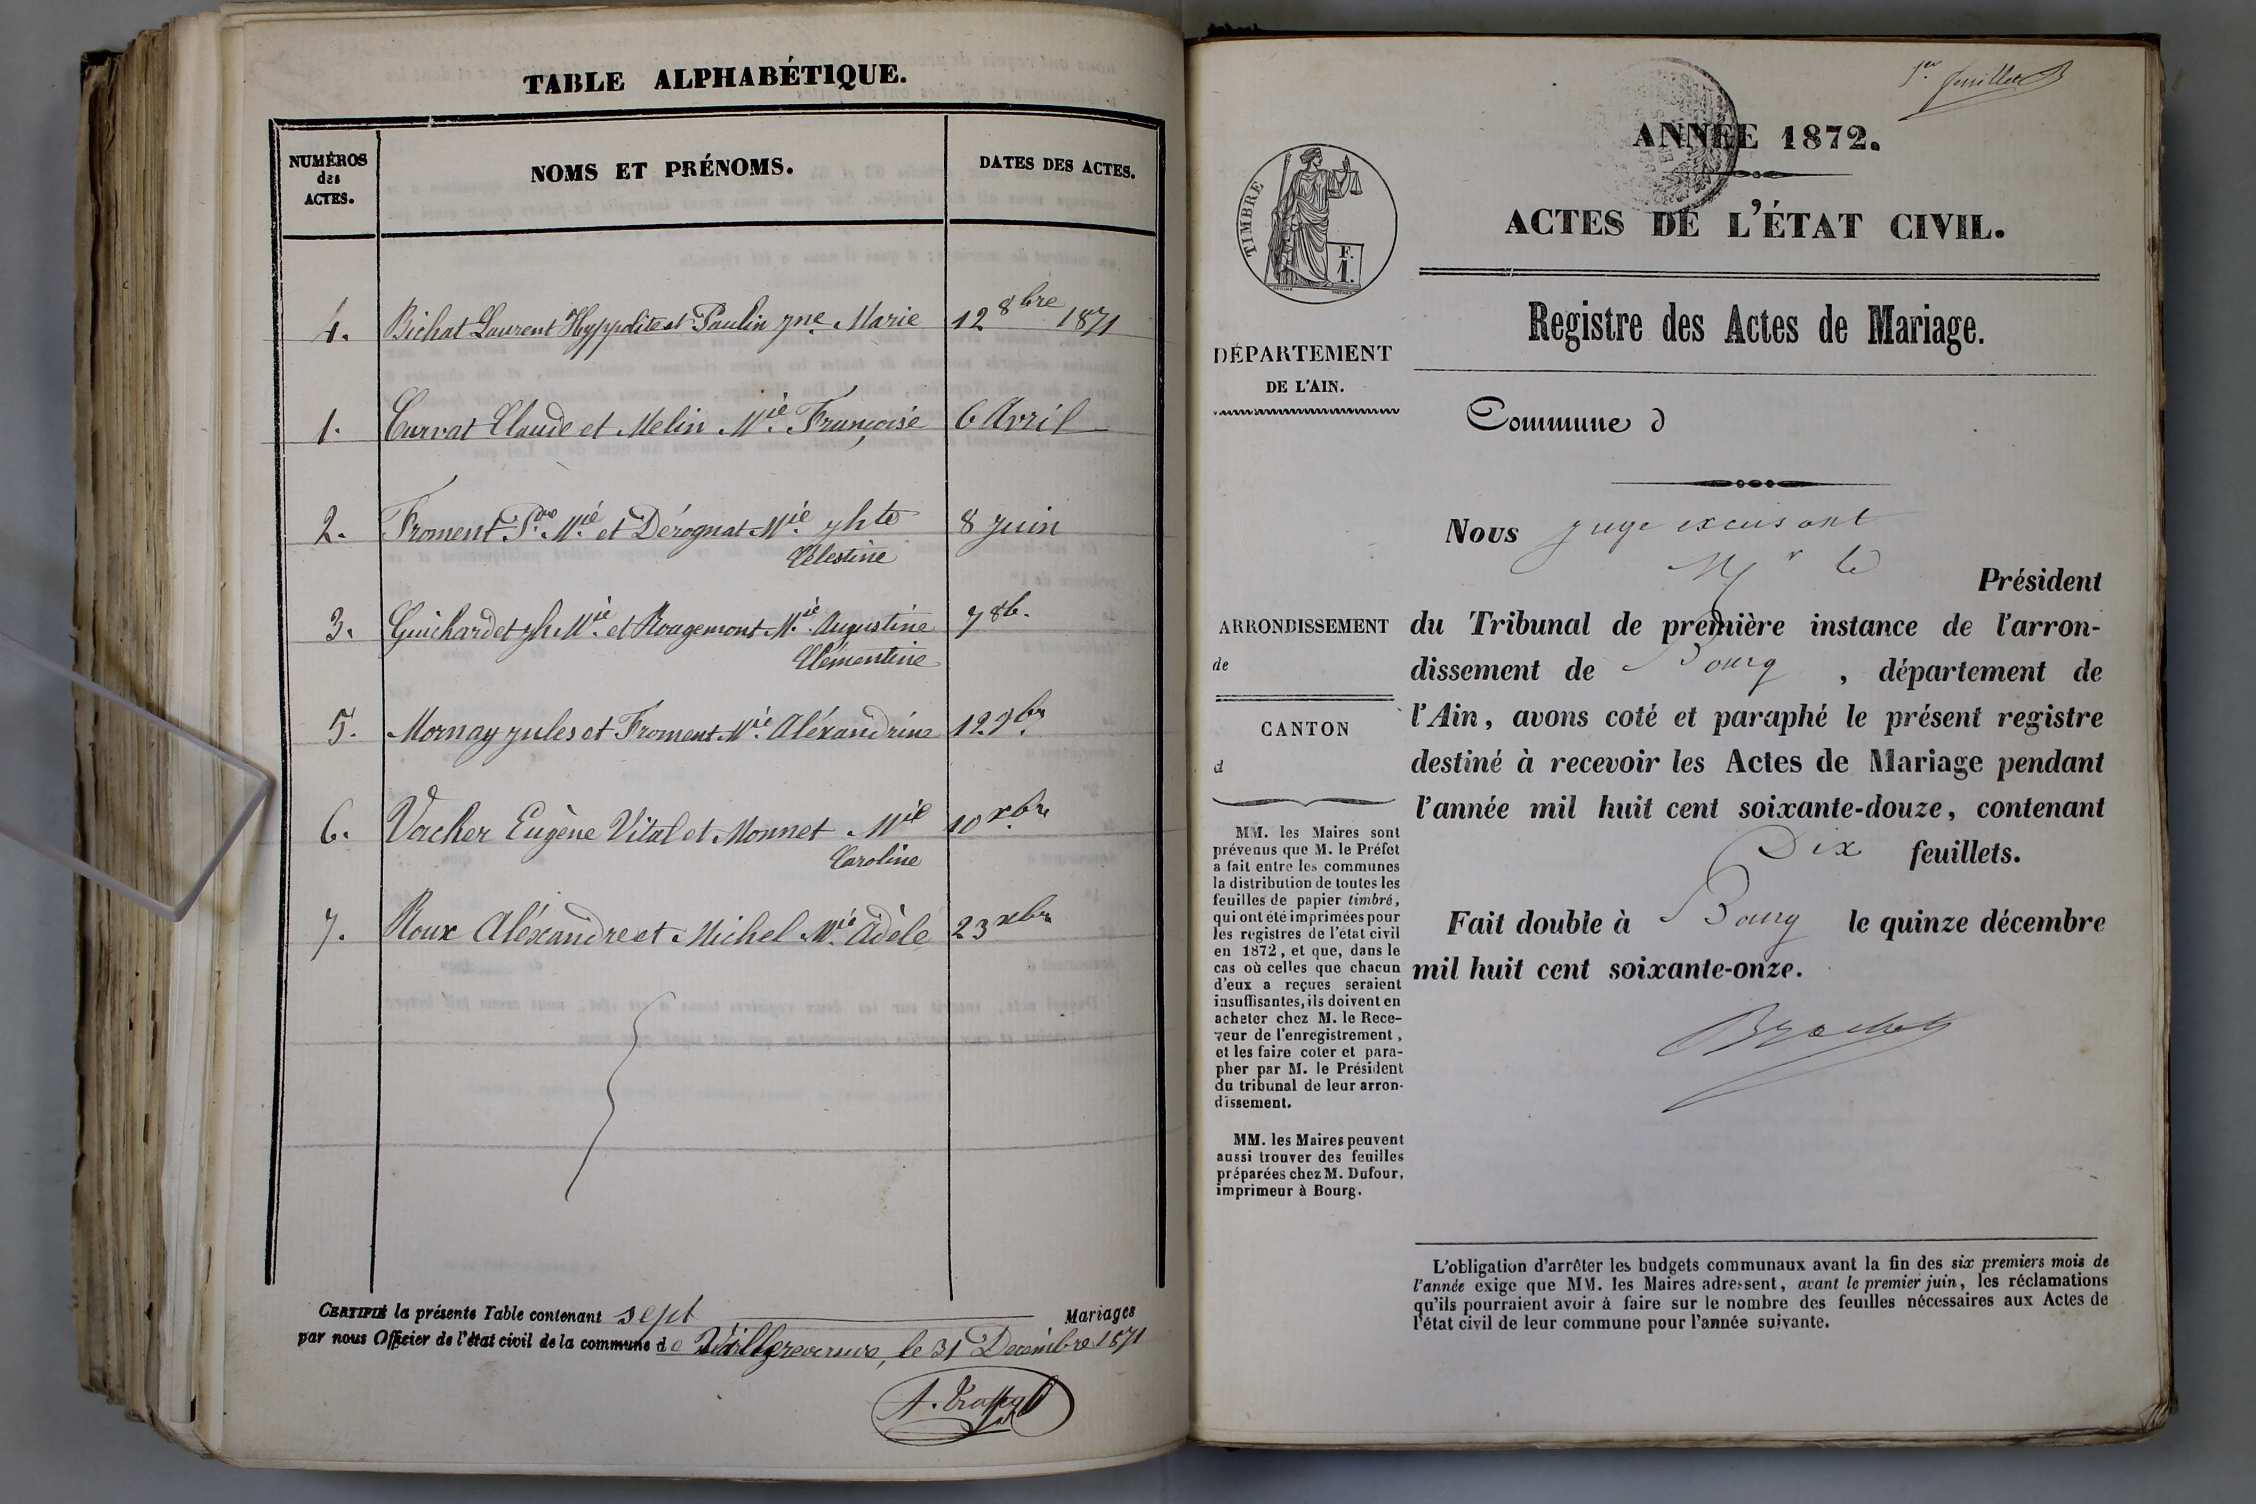 TABLE ALPHABÉTIQUE.
NUMÉROS
des
ACTES.
NOMS ET PRÉNOMS.
DATES DES ACTES.
4. Bichat Laurent Hyppolite et Paulin Jne Marie 12 8bre 1871
1. Curvat Claude et Melin Mie Françoise 6 Avril
2. Froment Mie et Dérognat Mie jhte 8 Juin
Célestine
3. Guichardet jh Mie et Rougemont Mie Augustine 7 8b.
Clémentine
5. Mornay Jules et Froment Mie Aléxandrine 12 9bre
6. Vacher Eugène Vital et Monnet Mie 10 xbre
Caroline
7. Roux Aléxandre et Michel Mie Adèle 23 xbre
CERTIFIÉ la présente Table contenant sept Mariages
par nous Officier de l'état civil de la commune de Villereversure, le 31 Décembre 1871
1er feuillet B
ANNÉE 1872.
ACTES DE L'ÉTAT CIVIL.
Registre des Actes de Mariage.
TIMBRE
F.
1.
DÉPARTEMENT
DE L'AIN.
Commune d
Nous juge excusant
Mr le
Président
ARRONDISSEMENT
de
CANTON
d
du Tribunal de première instance de l'arron-
dissement de Bourg, département de
l'Ain, avons coté et paraphé le présent registre
destiné à recevoir les Actes de Mariage pendant
l'année mil huit cent soixante-douze, contenant
Dix feuillets.
Fait double à Bourg le quinze décembre
mil huit cent soixante-onze.
MM. les Maires sont
prévenus que M. le Préfet
a fait entre les communes
la distribution de toutes les
feuilles de papier timbré,
qui ont été imprimées pour
les registres de l'état civil
en 1872, et que, dans le
cas où celles que chacun
d'eux a reçues seraient
insuffisantes, ils doivent en
acheter chez M. le Rece-
veur de l'enregistrement,
et les faire coter et para-
pher par M. le Président
du tribunal de leur arron-
dissement.
MM. les Maires peuvent
aussi trouver des feuilles
préparées chez M. Dufour,
imprimeur à Bourg.
L'obligation d'arrêter les budgets communaux avant la fin des six premiers mois de
l'année exige que MM. les Maires adressent, avant le premier juin, les réclamations
qu'ils pourraient avoir à faire sur le nombre des feuilles nécessaires aux Actes de
l'état civil de leur commune pour l'année suivante.